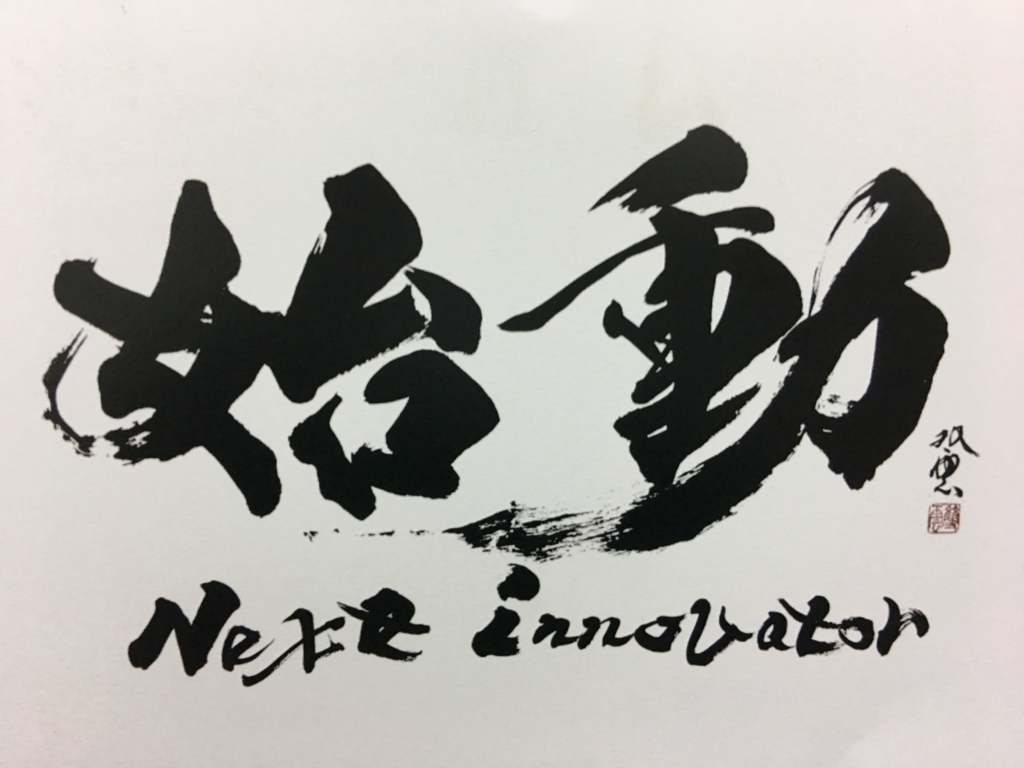 始動
Next innovator